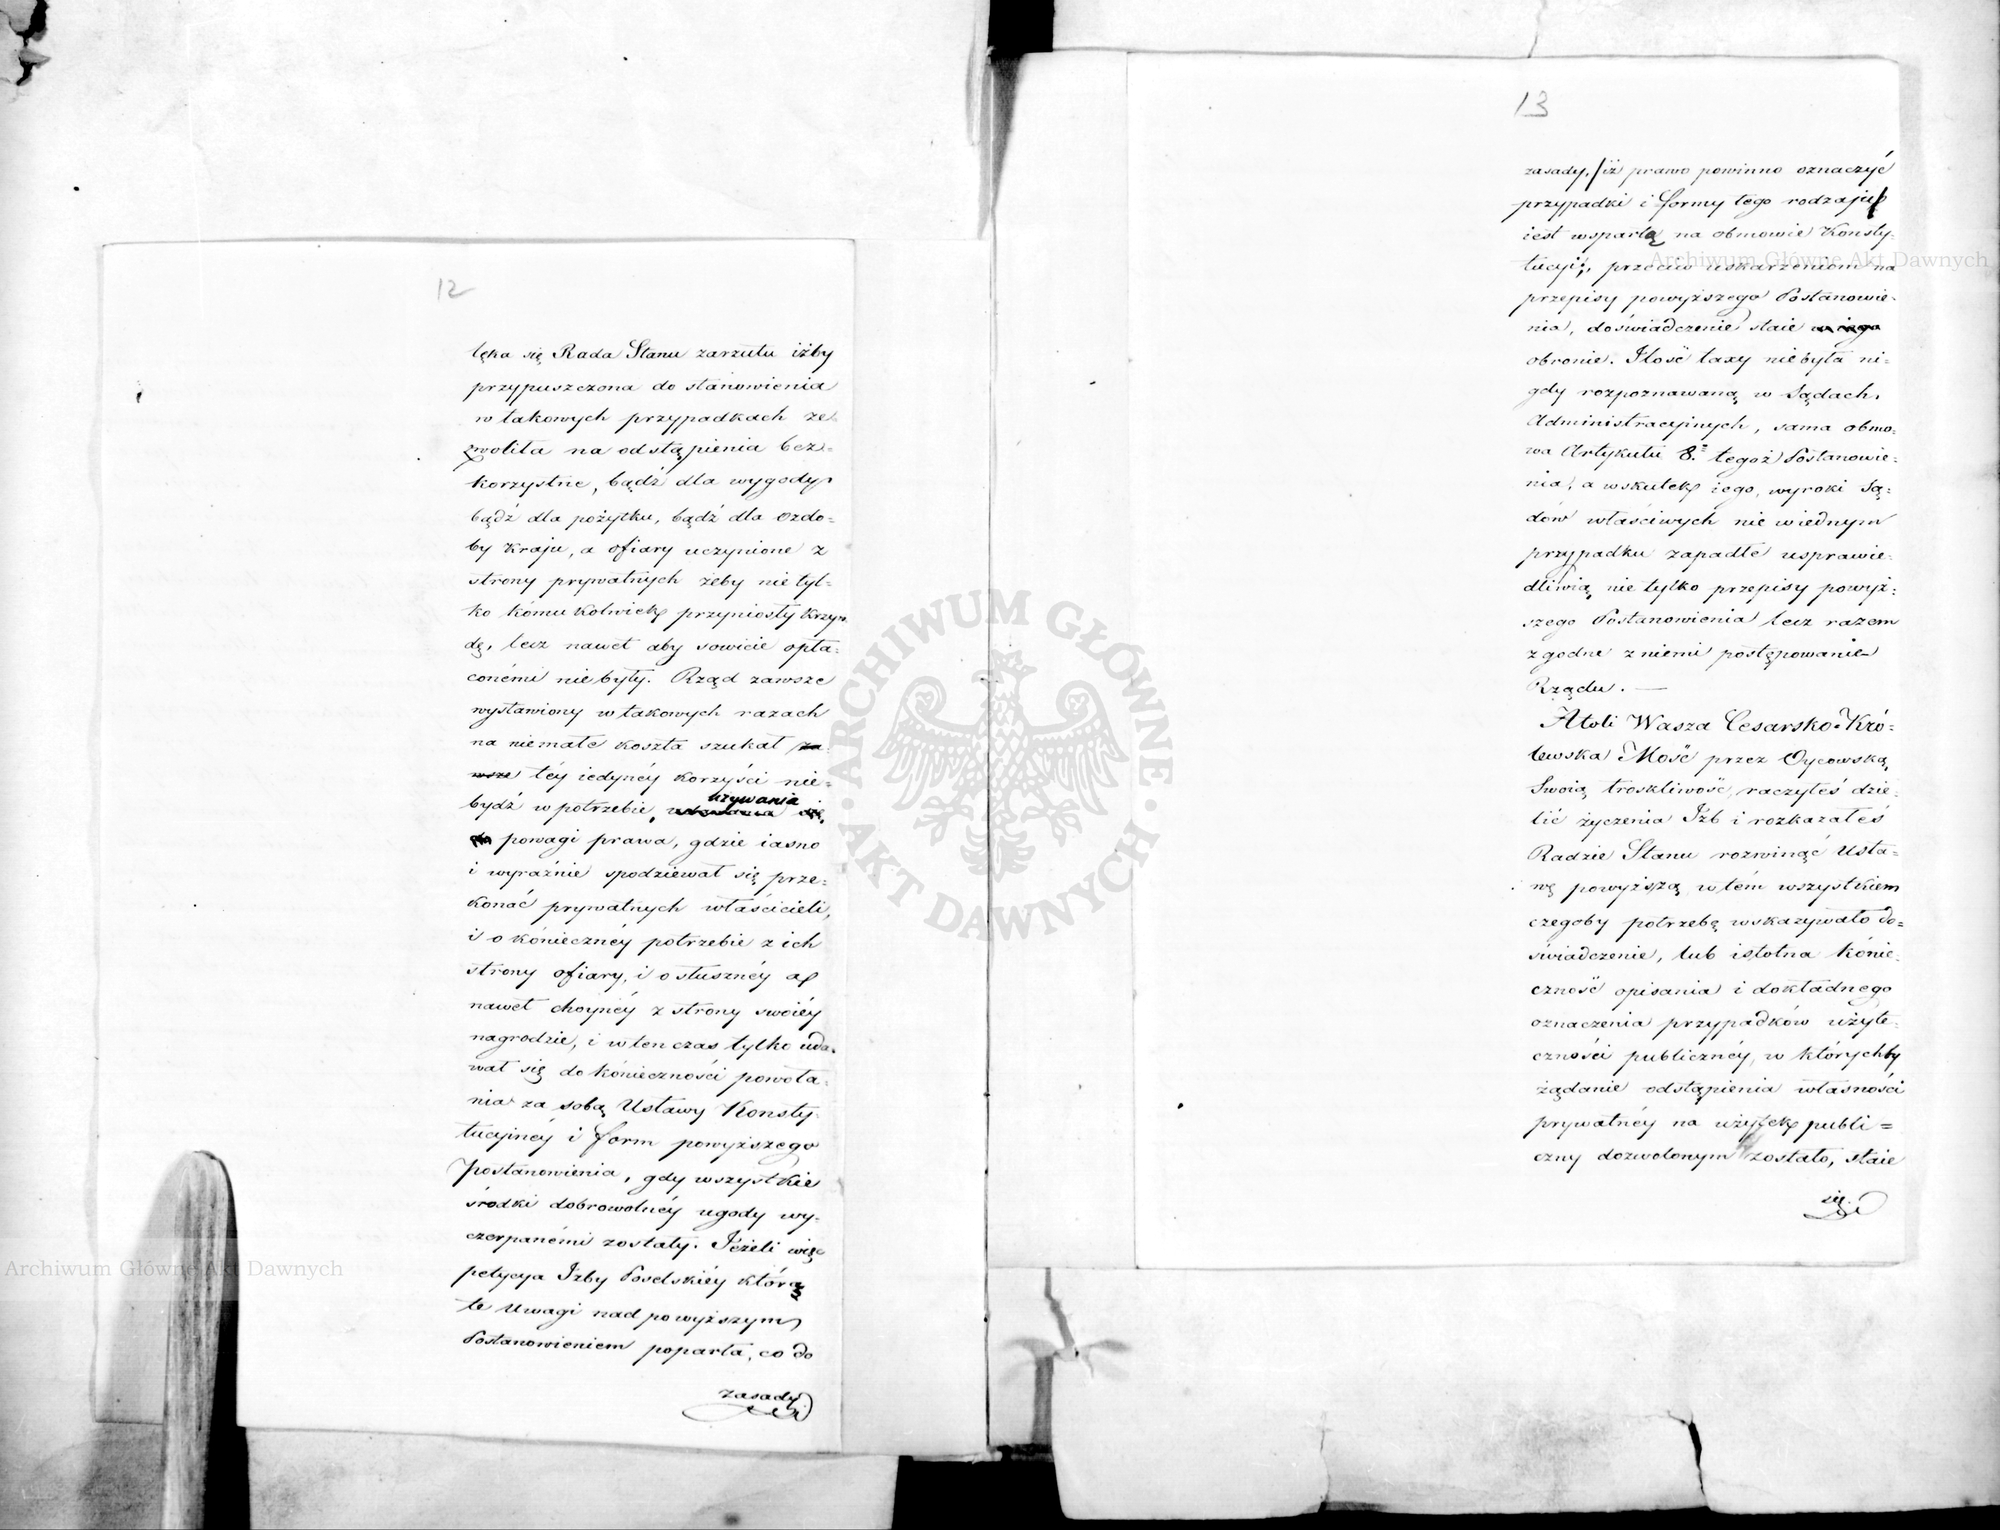 12
lęka się Rada Stanu zarzutu iżby
przypuszczona do stanowienia
w takowych przypadkach ze-
zwoliła na odstąpienia bez-
korzystne, bądź dla wygody,
bądź dla pożytku, bądź dla ozdo-
by kraju, a ofiary uczynione z
strony prywatnych żeby nie tyl-
ko kómukolwiek przyniosły krzyw-
dę, lecz nawet aby sowicie opła-
conémi nie były. Rząd zawsze
wystawiony w takowych razach
na niemałe koszta szukał za-
wsze téy iedynéy korzyści nie-
bydź w potrzebie, używania
powagi prawa, gdzie iasno
i wyraźnie spodziewał się prze-
konać prywatnych właścicieli,
i o koniecznéy potrzebie z ich
strony ofiary, i o słusznéy a
nawet choynéy z strony swoiéy
nagrodzie, i w ten czas tylko uda-
wał się do kónieczności powoła-
nia za sobą Ustawy Konsty-
tucyinéy i form powyższego
Postanowienia, gdy wszystkie
środki dobrowolnéy ugody wy-
czerpanémi zostały. Jeżeli więc
petycya Izby Poselskiéy którą
te Uwagi nad powyższym
Postanowieniem poparła, co do
zasady
13
zasady, iż prawo powinno oznaczyć
przypadki i formy tego rodzaju
iest wspartą na obmowie Konsty-
tucyi; przeciw uskarżeniom na
przepisy powyższego Postanowie-
nia, doświadczenie staie w iego
obronie. Ilość taxy niebyła ni-
gdy rozpoznawaną w Sądach
Administracyinych, sama obmo-
wa Artykułu 8. tegoż Postanowie-
nia, a wskutek iego, wyroki Są-
dów właściwych nie wiednym
przypadku zapadłe usprawie-
dliwią nie tylko przepisy powyż-
szego Postanowienia lecz razem
zgodne z niemi postępowanie
Rządu. —
Atoli Wasza Cesarsko-Kró-
lewska Mość przez Oycowską
Swoią troskliwość, raczyłeś dzie-
lić życzenia Izb i rozkazałeś
Radzie Stanu rozwinąć Usta-
wę powyższą w tém wszystkiem
czegoby potrzebę wskazywało do-
świadczenie, lub istotna kónie-
czność opisania i dokładnego
oznaczenia przypadków użyte-
czności publicznéy, w którychby
żądanie odstąpienia własności
prywatnéy na użytek publi=
czny dozwolonym zostało, staie
się
Archiwum Główne Akt Dawnych
Archiwum Główne Akt Dawnych
ARCHIWUM GŁÓWNE
AKT DAWNYCH